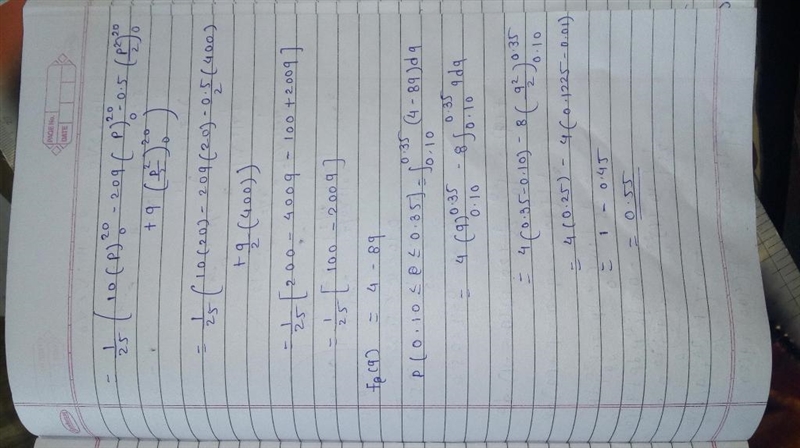 PAGE No.
DATE
= 1/25 ( 10(P)₀²⁰ - 20q (P)₀²⁰ - 0.5 (P²/2)₀²⁰
+ q (P²/2)₀²⁰ )
= 1/25 ( 10(20) - 20q(20) - 0.5/2 (400)
+ q/2 (400) )
= 1/25 [ 200 - 400q - 100 + 200q ]
= 1/25 [ 100 - 200q ]
f_Q(q) = 4 - 8q
P(0.10 ≤ Q ≤ 0.35) = ∫_{0.10}^{0.35} (4 - 8q) dq
= 4 (q)_{0.10}^{0.35} - 8 ∫_{0.10}^{0.35} q dq
= 4(0.35-0.10) - 8 (q²/2)_{0.10}^{0.35}
= 4(0.25) - 4(0.1225-0.01)
= 1 - 0.45
= 0.55